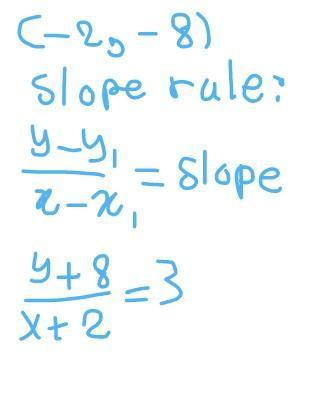 (-2, -8)
slope rule:
y-y₁/x-x₁ = slope
y+8/x+2 = 3